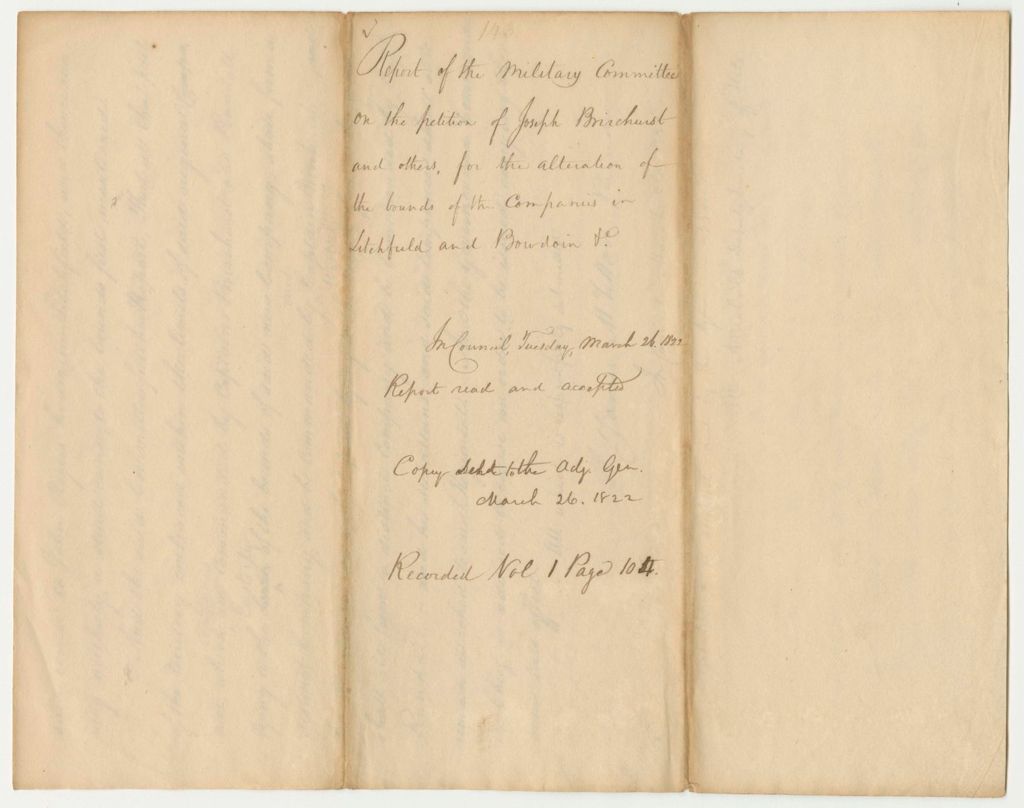 Report of the Military Committee
on the petition of Joseph
and others, for the alteration of
the bounds of the Companies in
Litchfield and Bowdoin &c
In Council, Tuesday, March 26. 1822
Report read and accepted
Copy sent to the Adj. Gen.
March 26. 1822
Recorded Vol 1 Page 104.